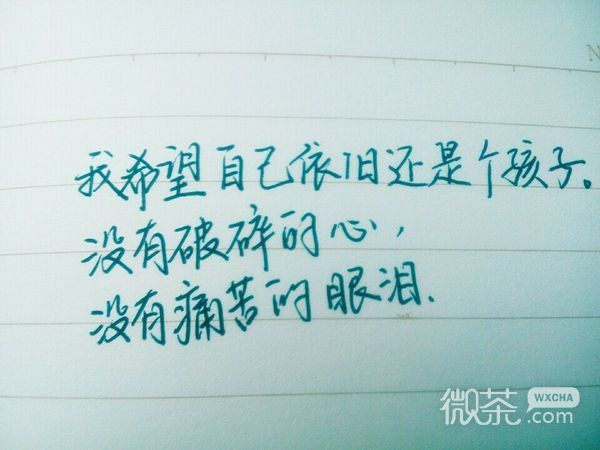 我希望自己依旧还是个孩子。
没有破碎的心，
没有痛苦的眼泪.
N
微茶 WXCHA .com